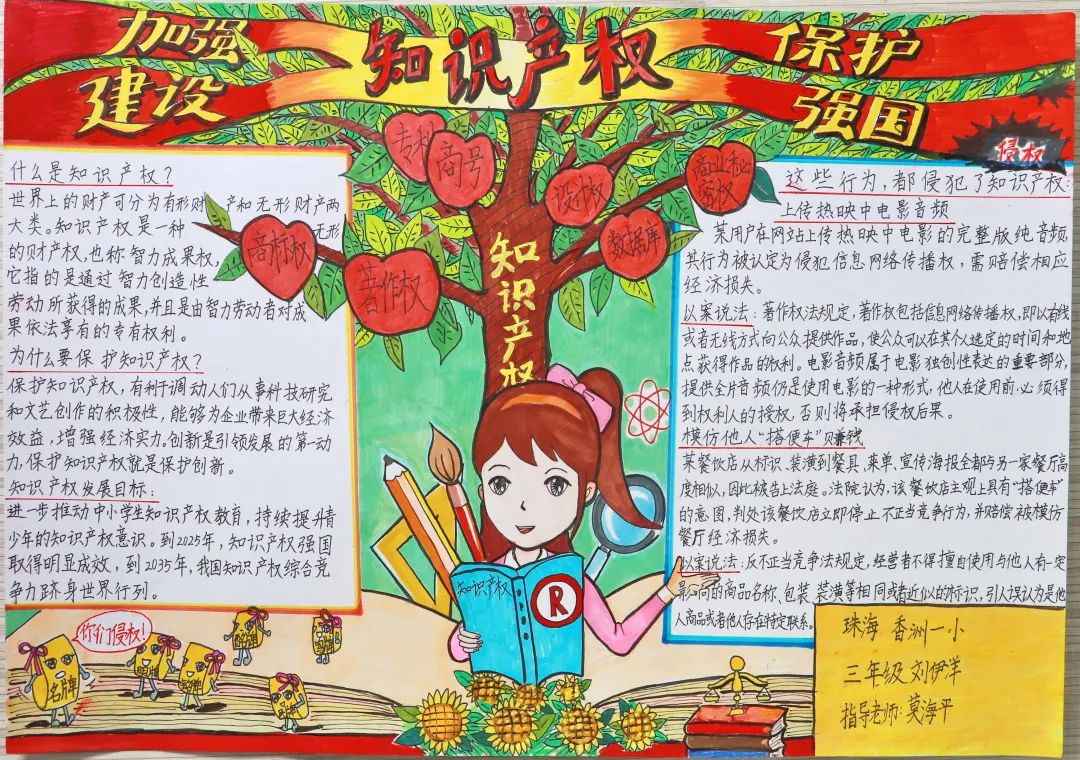 加强
建设
知识产权
保护
强国
侵权
专利
商号
设计权
商业秘
密权
商标权
著作权
数据库
知识产权
什么是知识产权？
世界上的财产可分为有形财产和无形财产两
大类。知识产权是一种无形
的财产权，也称智力成果权，
它指的是通过智力创造性
劳动所获得的成果，并且是由智力劳动者对成
果依法享有的专有权利。
为什么要保护知识产权？
保护知识产权，有利于调动人们从事科技研究
和文艺创作的积极性，能够为企业带来巨大经济
效益，增强经济实力。创新是引领发展的第一动
力，保护知识产权就是保护创新。
知识产权发展目标：
进一步推动中小学生知识产权教育，持续提升青
少年的知识产权意识。到2025年，知识产权强国
取得明显成效，到2035年，我国知识产权综合竞
争力跻身世界行列。
这些行为，都侵犯了知识产权：
上传热映中电影音频
某用户在网站上传热映中电影的完整版纯音频
其行为被认定为侵犯信息网络传播权，需赔偿相应
经济损失。
以案说法：著作权法规定，著作权包括信息网络传播权，即以有线
或者无线方式向公众提供作品，使公众可以在其个人选定的时间和地
点获得作品的权利。电影音频属于电影独创性表达的重要部分，
提供全片音频仍是使用电影的一种形式，他人在使用前必须得
到权利人的授权，否则将承担侵权后果。
模仿他人“搭便车”赚钱
某餐饮店从标识、装潢到餐具、菜单、宣传海报全都与另一家餐厅高
度相似，因此被告上法庭。法院认为，该餐饮店主观上具有“搭便车”
的意图，判处该餐饮店立即停止不正当竞争行为，并赔偿被模仿
餐厅经济损失。
以案说法：反不正当竞争法规定，经营者不得擅自使用与他人有一定
影响的商品名称、包装、装潢等相同或者近似的标识，引人误认为是他
人商品或者他人存在特定联系。
知识产权
R
你们侵权！
名牌
珠海 香洲一小
三年级 刘伊洋
指导老师：莫海平